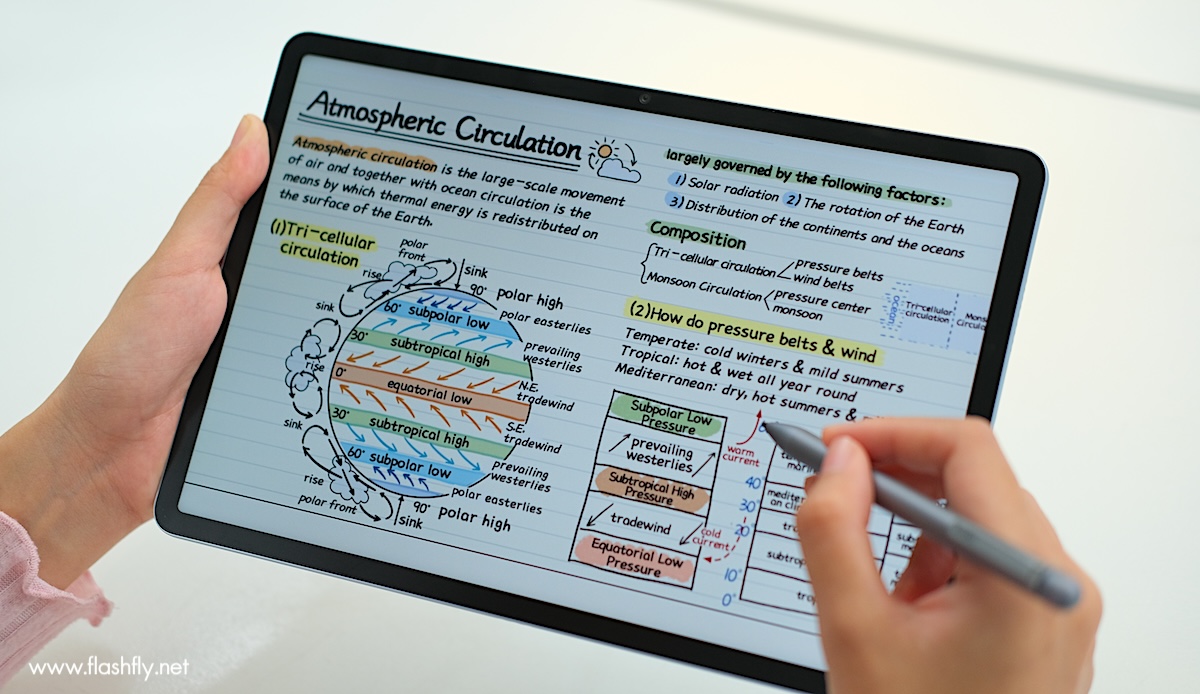 Atmospheric Circulation
Atmospheric circulation is the large-scale movement
of air and together with ocean circulation is the
means by which thermal energy is redistributed on
the surface of the Earth.
(1)Tri-cellular
circulation
polar
front
rise
sink
sink
90° polar high
polar easterlies
60° subpolar low
prevailing
westerlies
30° subtropical high
sink
rise
N.E.
tradewind
0° equatorial low
S.E.
tradewind
30° subtropical high
sink
prevailing
westerlies
60° subpolar low
rise
polar easterlies
polar front
90° polar high
sink
largely governed by the following factors:
1) Solar radiation 2) The rotation of the Earth
3) Distribution of the continents and the oceans
Composition
Tri-cellular circulation
pressure belts
wind belts
Monsoon Circulation
pressure center
monsoon
ocean
Tri-cellular
circulation
(2)How do pressure belts & wind
Temperate: cold winters & mild summers
Tropical: hot & wet all year round
Mediterranean: dry, hot summers &
Subpolar Low
Pressure
prevailing
westerlies
Subtropical High
Pressure
tradewind
Equatorial Low
Pressure
warm
current
cold
current
40°
30°
20°
10°
0°
www.flashfly.net